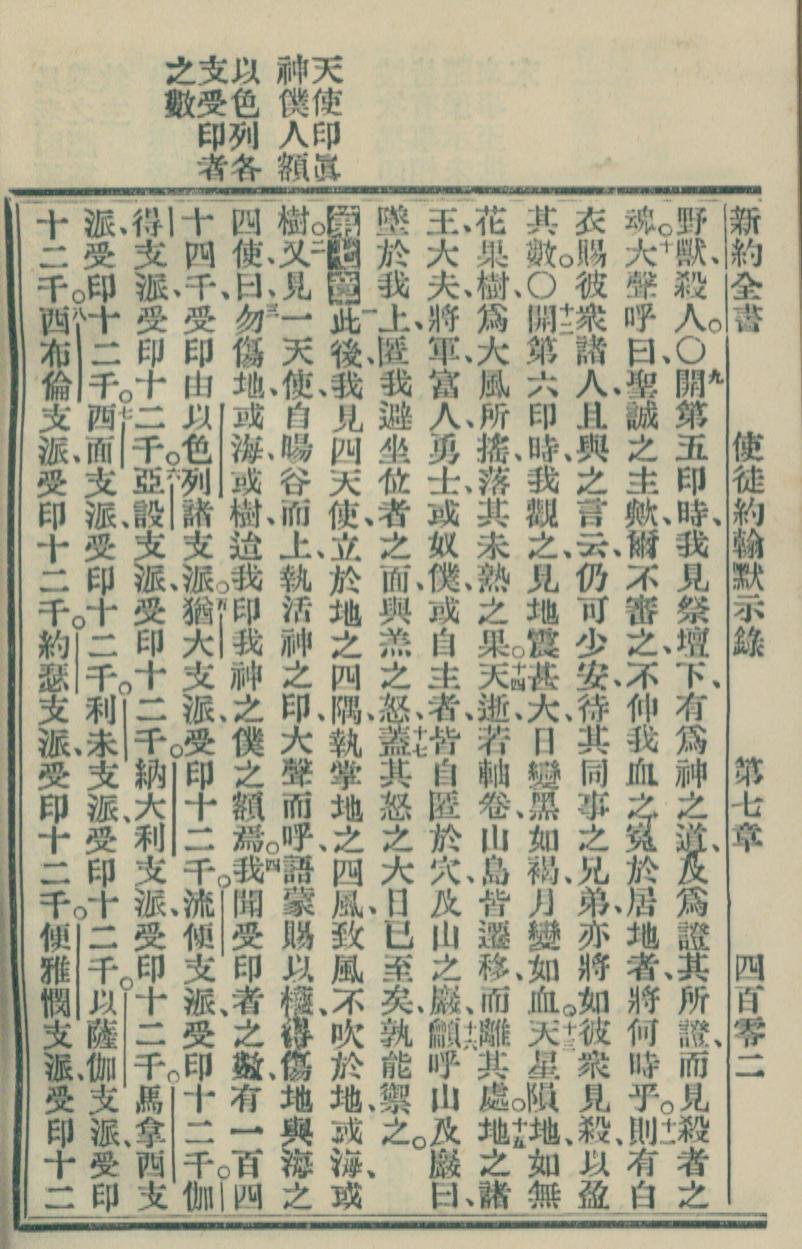 天使印眞
神僕人額
以色列各
支受印者
之數
新約全書 使徒約翰默示錄 第七章 四百零二
野獸、殺人。〇九開第五印時、我見祭壇下、有爲神之道、及爲證其所證、而見殺者之
魂。十大聲呼曰、聖誠之主歟、爾不審之、不伸我血之寃於居地者、將何時乎。十一則有白
衣賜彼衆諸人、且與之言云、仍可少安、待其同事之兄弟、亦將如彼衆見殺、以盈
其數。〇十二開第六印時、我觀之、見地震甚大、日變黑如褐、月變如血。十三天星隕地、如無
花果樹、爲大風所搖、落其未熟之果。十四天逝若軸卷、山島皆遷移、而離其處。十五地之諸
王、大夫、將軍、富人、勇士、或奴僕、或自主者、皆自匿於穴、及山之巖、十六籲呼山及巖曰、
墜於我上、匿我避坐位者之面、與羔之怒、十七蓋其怒之大日已至矣、孰能禦之。
第七章一此後、我見四天使、立於地之四隅、執掌地之四風、致風不吹於地、或海、或
樹。二又見一天使、自暘谷而上、執活神之印、大聲而呼、語蒙賜以權得傷地與海之
四使曰、三勿傷地、或海、或樹、迨我印我神之僕之額焉。四我聞受印者之數、有一百四
十四千、受印由以色列諸支派。五猶大支派、受印十二千。流便支派、受印十二千。伽
得支派、受印十二千。六亞設支派、受印十二千。納大利支派、受印十二千。馬拿西支
派、受印十二千。七西面支派、受印十二千。利未支派、受印十二千。以薩伽支派、受印
十二千。八西布倫支派、受印十二千。約瑟支派、受印十二千。便雅憫支派、受印十二